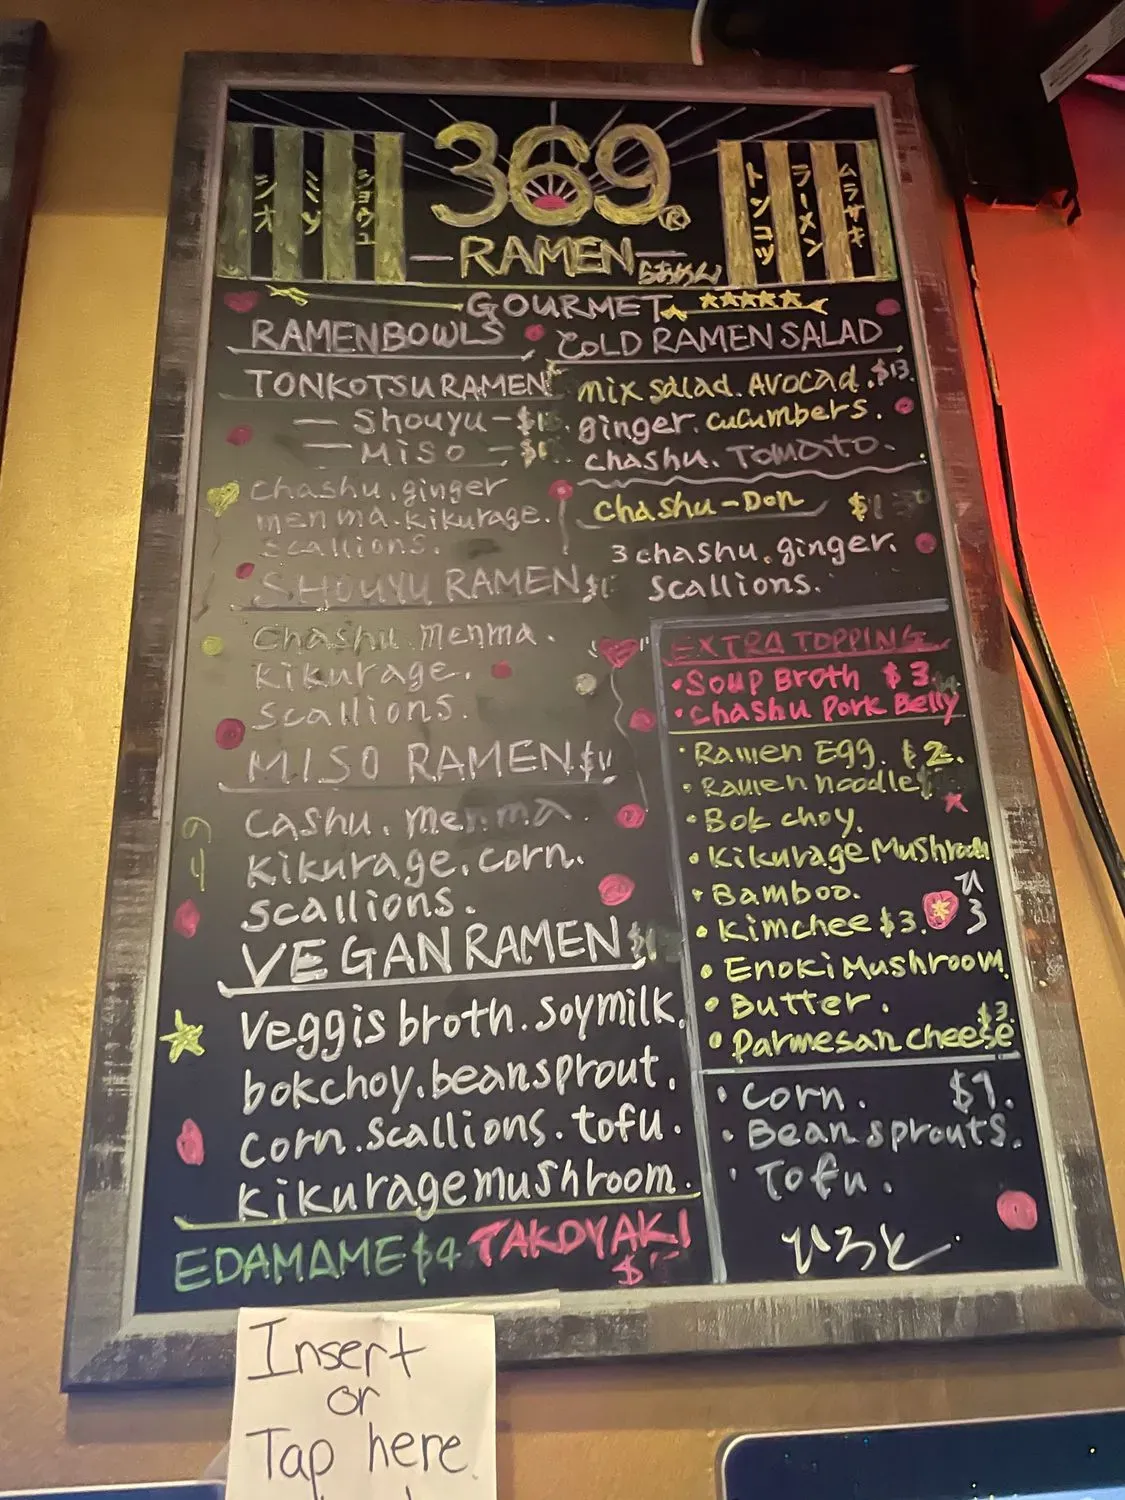 シオ
ミソ
ショウユ
369®
RAMEN らあめん
トンコツ
ラーメン
ムラサキ
GOURMET
RAMEN BOWLS
TONKOTSU RAMEN
— Shouyu -
— Miso -
chashu. ginger
menma. kikurage.
scallions.
SHOUYU RAMEN
Chashu. menma.
kikurage.
scallions.
MISO RAMEN
Cashu. menma.
kikurage. corn.
scallions.
VEGAN RAMEN
Veggis broth. soymilk.
bokchoy. bean sprout.
corn. scallions. tofu.
kikurage mushroom.
EDAMAME $4 TAKOYAKI
$
COLD RAMEN SALAD
mix salad. Avocad. $13.
ginger. cucumbers.
chashu. Tomato.
chashu-Don
3 chashu. ginger.
scallions.
EXTRA TOPPING
• Soup Broth $3.
• Chashu Pork Belly
• Ramen Egg. $2.
• Ramen noodle
• Bok choy.
• Kikurage Mushroom
• Bamboo.
• Kimchee $3.
• Enoki Mushroom.
• Butter.
$3.
• Parmesan cheese
• Corn. $1.
• Bean sprouts.
• Tofu.
ひろと
Insert
or
Tap here